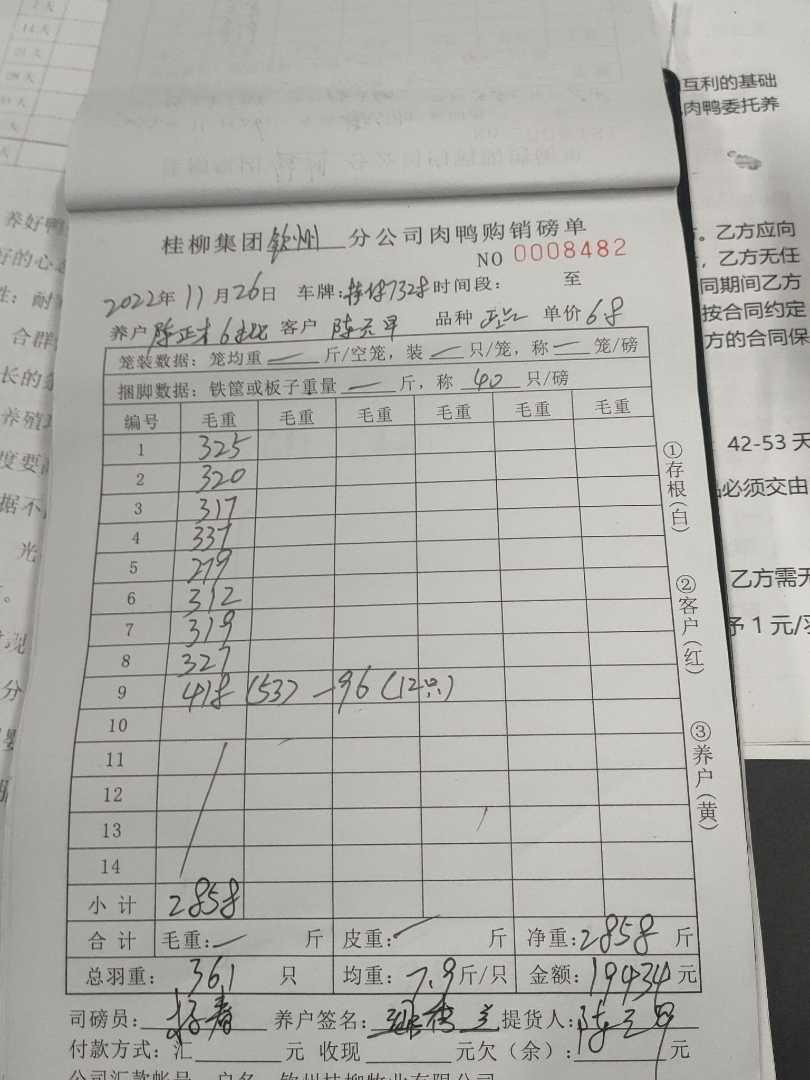 桂柳集团钦州分公司肉鸭购销磅单
NO 0008482
2022年11月26日 车牌: 时间段: 至
养户 客户 品种 单价6.8
笼装数据: 笼均重 — 斤/空笼, 装 — 只/笼, 称 — 笼/磅
捆脚数据: 铁筐或板子重量 — 斤, 称 40 只/磅
编号 毛重 毛重 毛重 毛重 毛重 毛重
1 325
2 320
3 317
4 337
5 279
6 312
7 319
8 327
9 418 (53) -96 (12只)
10
11
12
13
14
小计 2858
合计 毛重: — 斤 皮重: — 斤 净重: 2858 斤
总羽重: 361 只 均重: 7.9 斤/只 金额: 19434 元
司磅员: 养户签名: 提货人:
付款方式: 汇 元 收现 元 欠(余): 元
公司汇款帐号 户名 钦州桂柳牧业有限公司
①存根(白)
②客户(红)
③养户(黄)
互利的基础
肉鸭委托养
。乙方应向
,乙方无任
同期间乙方
按合同约定
方的合同保
42-53 天
必须交由
乙方需无
予 1 元/羽
养好鸭
好的心态
性: 耐
合群
长的
养殖
度要
据不
光
分